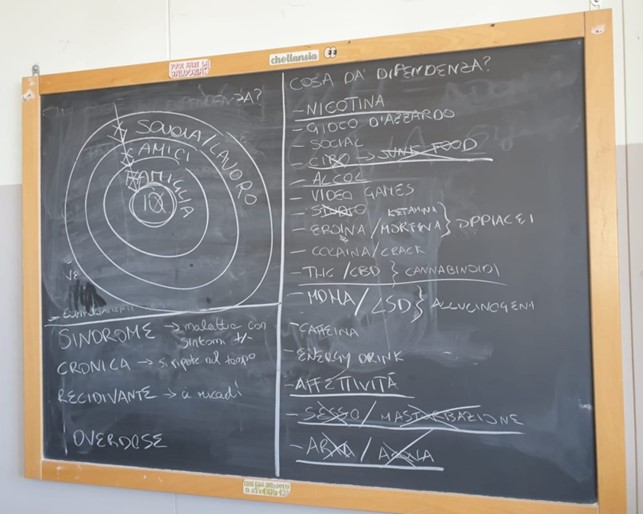 chellansia
COSA DA' DIPENDENZA?
- NICOTINA
- GIOCO D'AZZARDO
- SOCIAL
- CIBO → JUNK FOOD
- ALCOL
- VIDEO GAMES
KETAMINA
- EROINA / MORFINA } OPPIACEI
- COCAINA / CRACK
- THC / CBD } CANNABINOIDI
- MDMA / LSD } ALLUCINOGENI
- CAFFEINA
- ENERGY DRINK
- AFFETTIVITÀ
- SESSO / MASTURBAZIONE
- ARIA / ACQUA
SCUOLA / LAVORO
AMICI
FAMIGLIA
IO
SINDROME → malattia con
sintomi +/-
CRONICA → si ripete nel tempo
RECIDIVANTE → ci ricadi
OVERDOSE